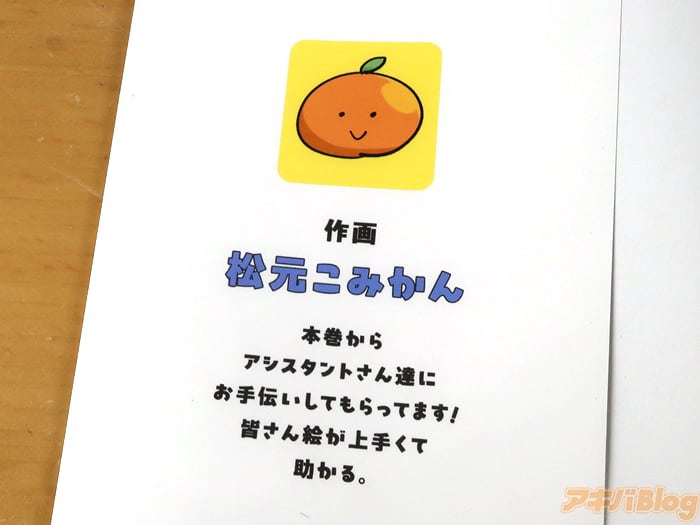 作画
松元こみかん
本巻から
アシスタントさん達に
お手伝いしてもらってます!
皆さん絵が上手くて
助かる。
アキバBlog